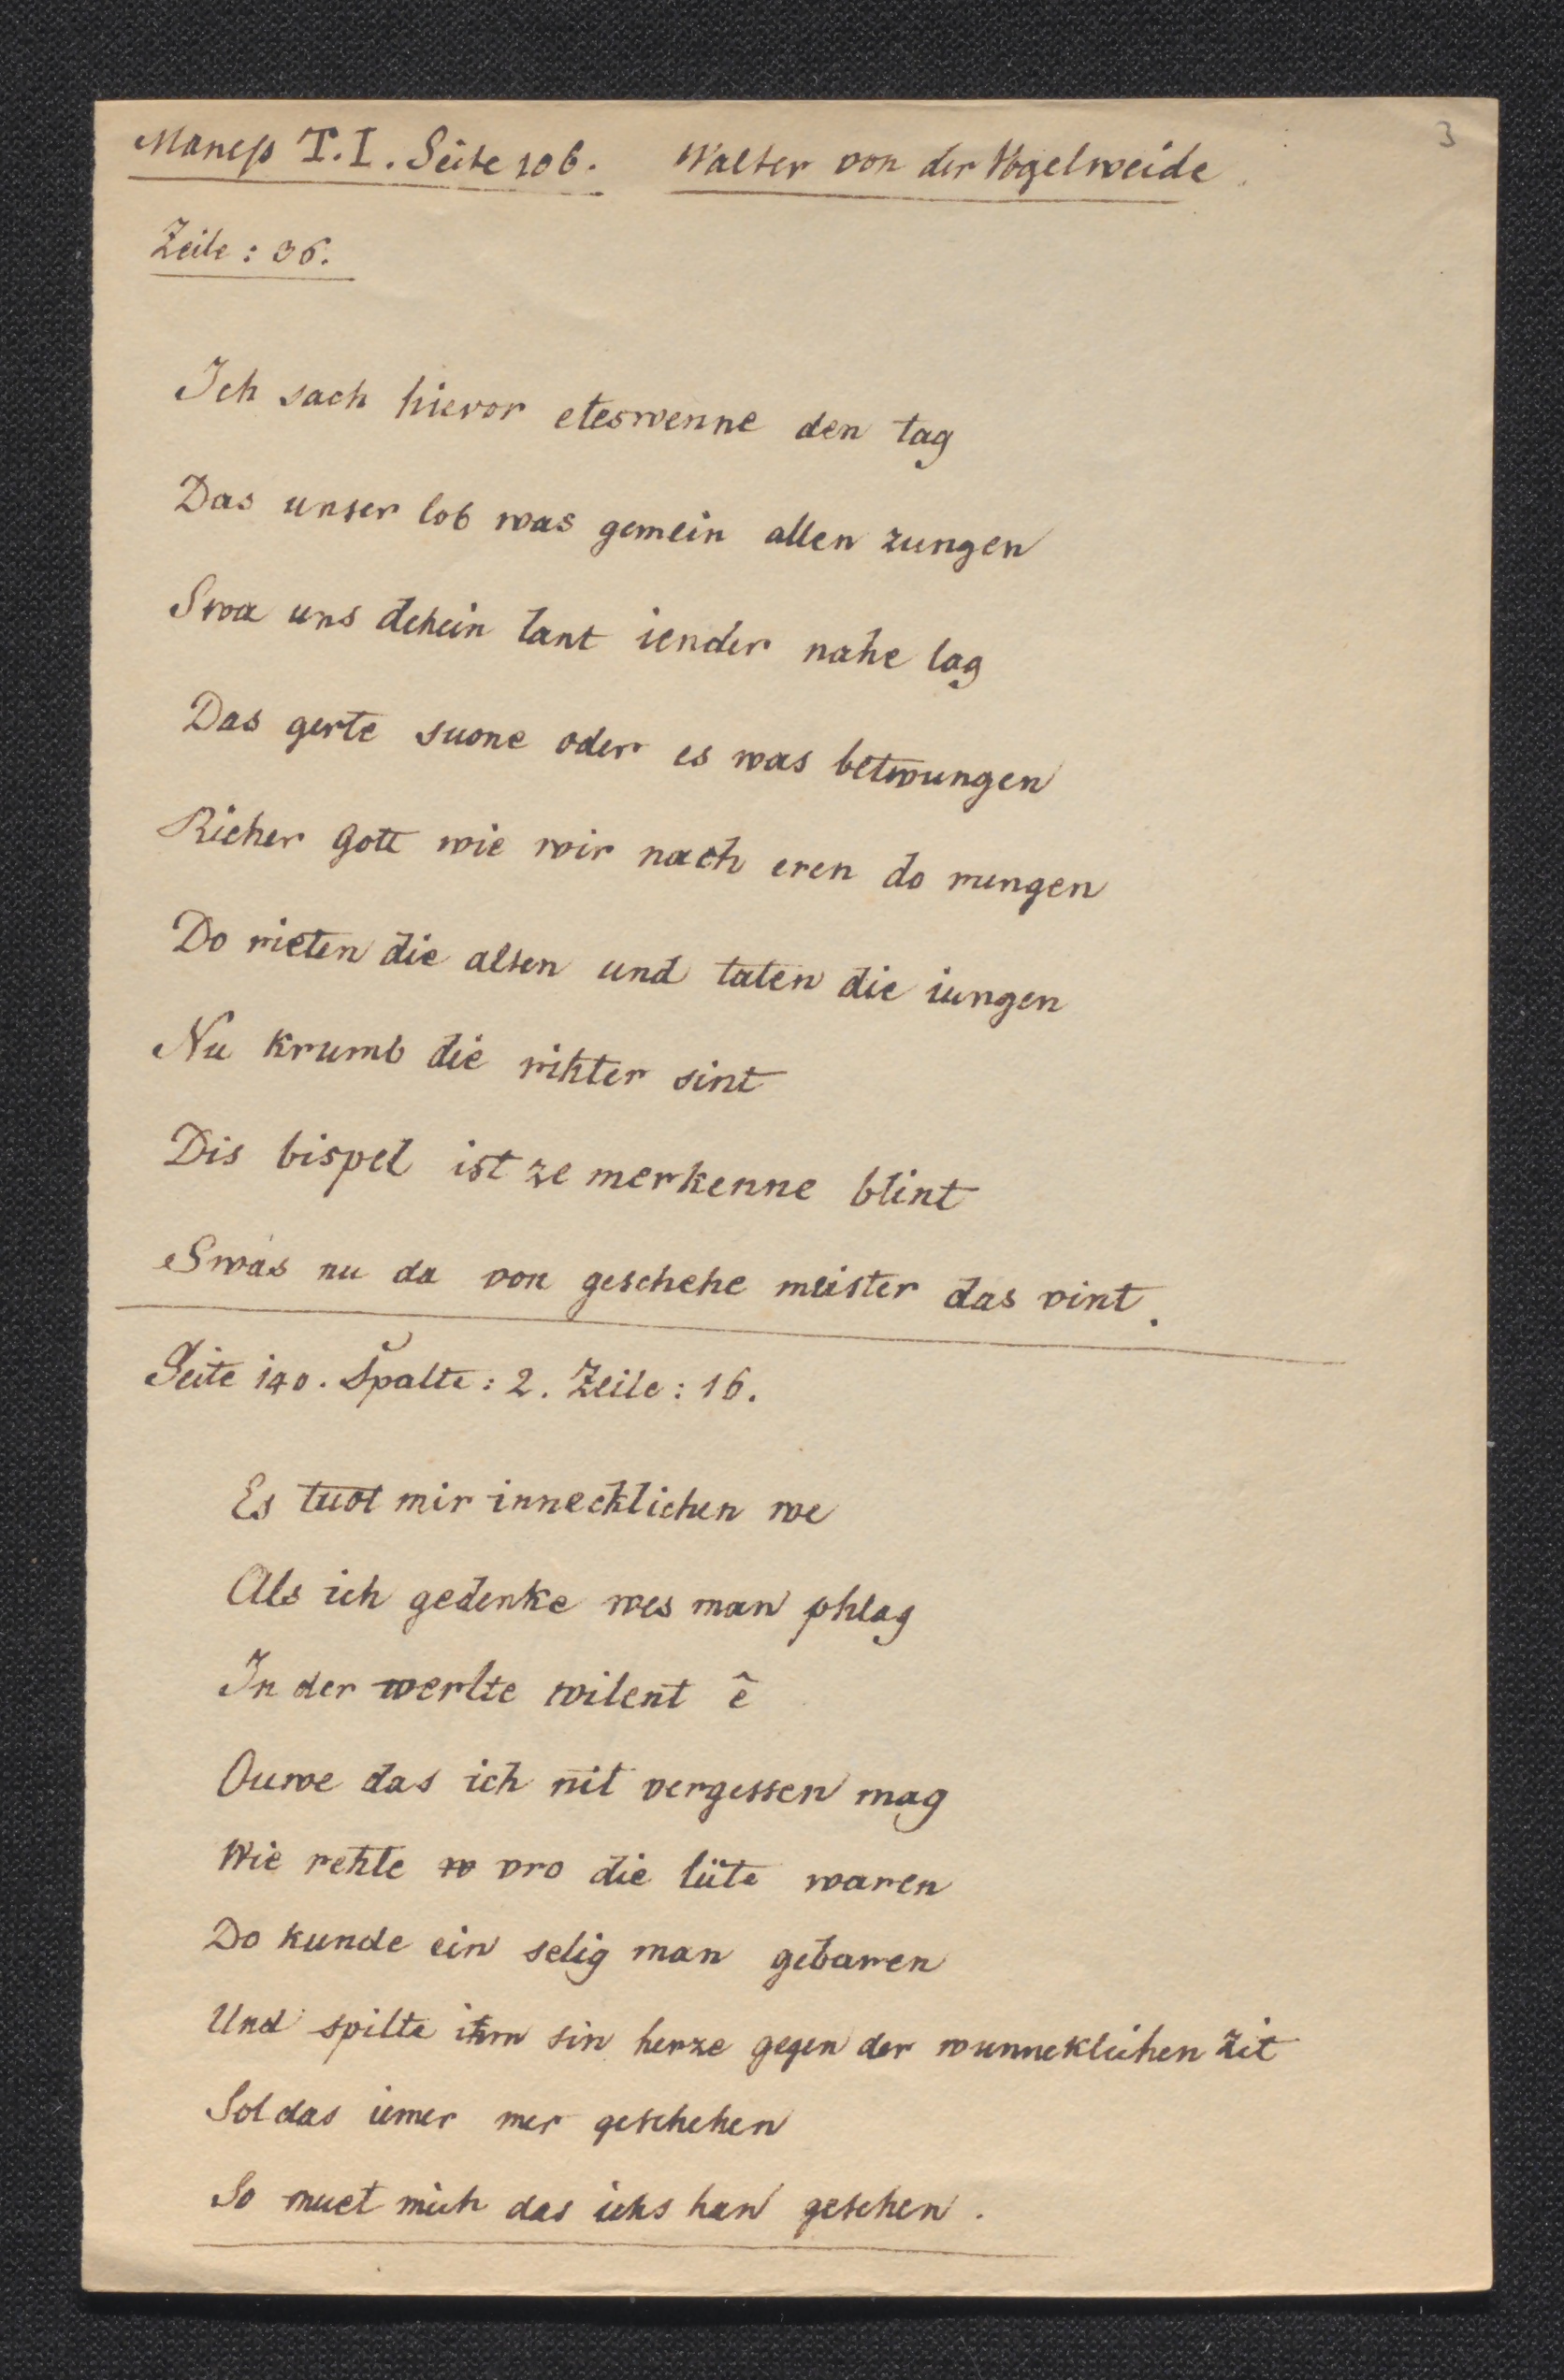 3
Maneß T. I. Seite 106. Walter von der Vogelweide
Zeile: 36.
Ich sach hievor eteswenne den tag
Das unser lob was gemein allen zungen
Swa uns dehein lant iender nahe lag
Das gerte suone oder es was betwungen
Richer Gott wie wir nach eren do rungen
Do rieten die alten und taten die iungen
Nu krumb die rihter sint
Dis bispel ist ze merkenne blint
Swas nu da von geschehe meister das vint.
Seite 140. Spalte: 2. Zeile: 16.
Es tuot mir innecklichen we
Als ich gedenke wes man phlag
In der werlte wilent ê
Ouwe das ich nit vergessen mag
Wie rehte w vro die lüte waren
Do kunde ein selig man gebaren
Und spilte ihm sin herze gegen der wunneklichen zit
Sol das iemer mer geschehen
So muet mich das ichs han gesehen.